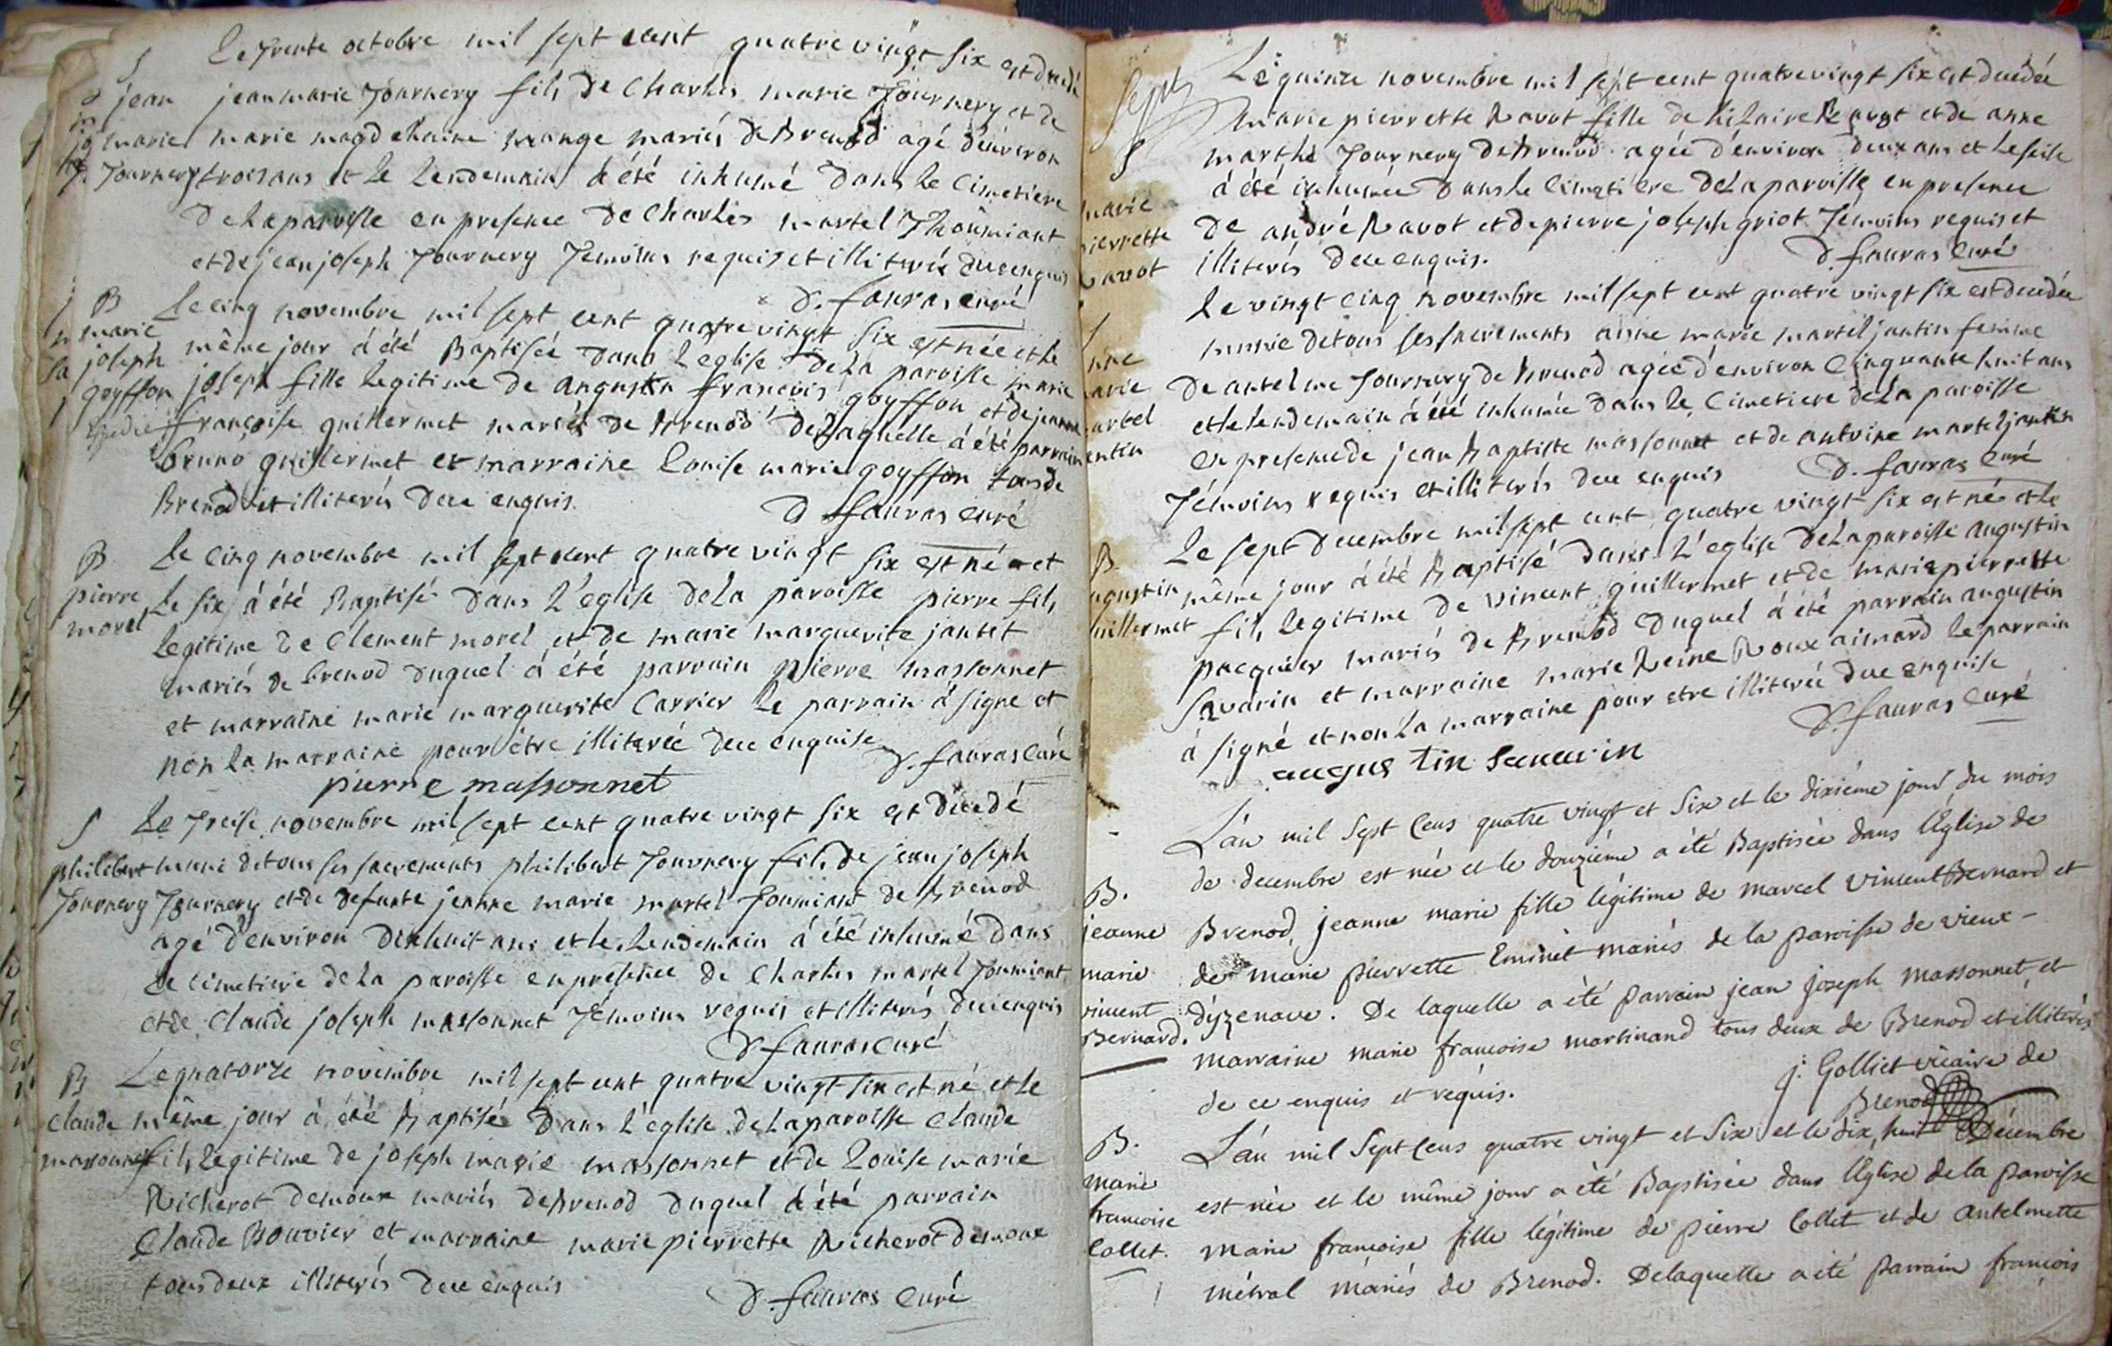 S Le trente octobre mil sept cent quatre vingt six est decedé
jean jean marie Tournery fils de Charles marie Tournery et de
marie marie magdelaine mange mariés de Brenod agé d'environ
Tournery trois ans et le lendemain à été inhumé dans le cimetiere
de la paroisse en presence de Charles martel
et de jean joseph Tournery Temoins requis et illiterés de ce enquis
D. fauras curé
B Le cinq novembre mil sept cent quatre vingt six est née et le
marie
joseph même jour à été Baptisée dans l'eglise de la paroisse marie
goyffon joseph fille legitime de augustin francois goyffon et de jeanne
françoise guillermet mariés de Brenod de laquelle à été parrain
bruno guillermet et marraine Louise marie goyffon tous de
Brenod et illiterés de ce enquis.
D fauras curé
B Le cinq novembre mil sept cent quatre vingt six est né et
pierre Le six à été Baptisé dans l'église de la paroisse pierre fils
morel
legitime de Clement morel et de marie marguerite jantet
mariés de brenod duquel à été parrain pierre massonnet
et marraine marie marguerite Carrier le parrain à signé et
non la marraine pour être illiterée de ce enquise
D. fauras curé
pierre massonnet
S Le Treise novembre mil sept cent quatre vingt six est decedé
philibert muni de tous ses sacrements philibert Tournery fils de jean joseph
Tournery Tournery et de defunte jeanne marie martel Toumiant de Brenod
agé d'environ dixhuit ans et le lendemain à été inhumé dans
le cimetiere de la paroisse en presence de Charles martel Toumiant
et de Claude joseph massonnet Témoins requis et illiterés de ce enquis
D fauras curé
B Le quatorze novembre mil sept cent quatre vingt six est né et le
Claude même jour à été Baptisé dans l'église de la paroisse Claude
massonnet fils legitime de joseph marie massonnet et de Louise marie
Richerot demoux mariés de Brenod duquel à été parrain
Claude Bouvier et marraine marie pierrette Richerot demoux
tous deux illiterés de ce enquis
D. fauras curé
Le quinze novembre mil sept cent quatre vingt six est decedée
marie pierrette Ravot fille de hilaire Ravot et de anne
S marthe Tournery de Brenod agée d'environ deux ans et le seise
à été inhumée dans le cimetiere de la paroisse en presence
marie
pierrette de andré Ravot et de pierre joseph griot Témoins requis et
Ravot illiterés de ce enquis.
D. fauras curé
Le vingt cinq novembre mil sept cent quatre vingt six est decedée
munie de tous ses sacrements anne marie martel jantin femme
anne
marie de antelme Tournery de Brenod agée d'environ cinquante huit ans
martel et le lendemain à été inhumée dans le cimetiere de la paroisse
jentin en presence de jean Baptiste massonnet et de antoine martel jantin
Témoins requis et illiterés de ce enquis
D. fauras curé
B Le sept decembre mil sept cent quatre vingt six est né et le
augustin même jour à été Baptisé dans l'eglise de la paroisse augustin
guillermet fils legitime de vincent guillermet et de marie pierrette
pacquier mariés de Brenod duquel à été parrain augustin
Savarin et marraine marie Reine Roux aimard le parrain
à signé et non la marraine pour etre illiterée de ce enquise
D. fauras curé
augustin Savarin
L'an mil Sept Cens quatre vingt et Six et le dixiéme jour du mois
B. de decembre est née et le douziéme a été Baptisée dans l'Église de
jeanne Brenod, jeanne marie fille légitime de marcel vincent Bernard et
marie de marie pierrette Eminet mariés de la paroisse de vieux-
vincent d'yzenave. De laquelle a été parrain jean joseph massonnet et
Bernard. marraine marie francoise martinand tous deux de Brenod et illiterés
de ce enquis et requis.
j: Golliet vicaire de
Brenod
B. L'an mil Sept Cens quatre vingt et Six et le dix huit Décembre
marie est née et le même jour a été Baptisée dans l'Eglise de la paroisse
francoise
Collet. marie francoise fille légitime de pierre Collet et de antelmette
métral mariés de Brenod. Delaquelle a été parrain francois